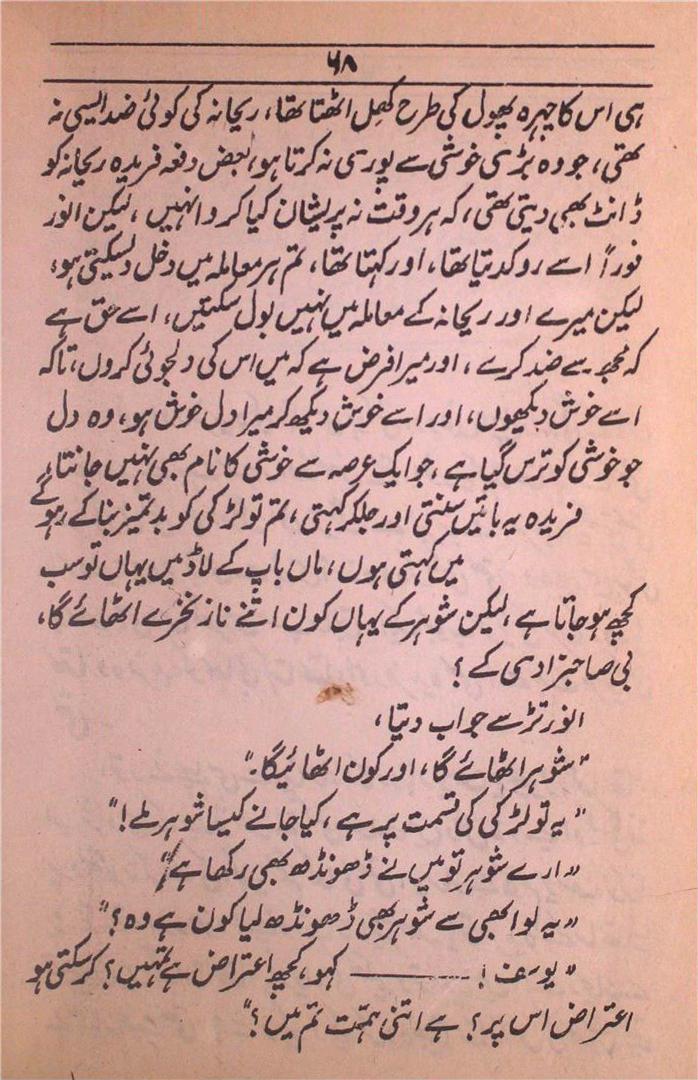 ۶۸
ہی اس کا چہرہ پھول کی طرح کھل اٹھتا تھا، ریحانہ کی کوئی ضد ایسی نہ
تھی، جو وہ بڑی خوشی سے پوری نہ کرتا ہو، بعض دفعہ فریدہ ریحانہ کو
ڈانٹ بھی دیتی تھی، کہ ہر وقت نہ پریشان کیا کرو انہیں، لیکن انور
فوراً اسے روکدیتا تھا، اور کہتا تھا، تم ہر معاملہ میں دخل دلسکیتی ہو،
لیکن میرے اور ریحانہ کے معاملہ میں نہیں بول سکتیں، اسے حق ہے
کہ مجھ سے ضد کرے، اور میرا فرض ہے کہ میں اس کی دلجوئی کروں، تاکہ
اسے خوش دیکھوں، اور اسے خوش دیکھ کر میرا دل خوش ہو، وہ دل
جو خوشی کو ترس گیا ہے، جو ایک عرصہ سے خوشی کا نام بھی نہیں جانتا،
فریدہ یہ باتیں سنتی اور جلکر کہتی، تم تو لڑکی کو بدتمیز بنا کے رہو گے
میں کہتی ہوں، ماں باپ کے لاڈ میں یہاں تو سب
کچھ ہو جاتا ہے، لیکن شوہر کے یہاں کون اتنے ناز نخرے اٹھائے گا،
بی صاحبزادی کے؟
انور تڑ سے جواب دیتا،
"شوہر اٹھائے گا، اور کون اٹھائیگا۔"
"یہ تو لڑکی کی قسمت پر ہے، کیا جانے کیسا شوہر ملے!"
"ارے شوہر تو میں نے ڈھونڈھ بھی رکھا ہے!"
"یہ لو ابھی سے شوہر بھی ڈھونڈھ لیا کون ہے وہ؟"
"یوسف! ——— کہو، کچھ اعتراض ہے تمہیں؟ کر سکتی ہو
اعتراض اس پر؟ ہے اتنی ہمت تم میں؟"